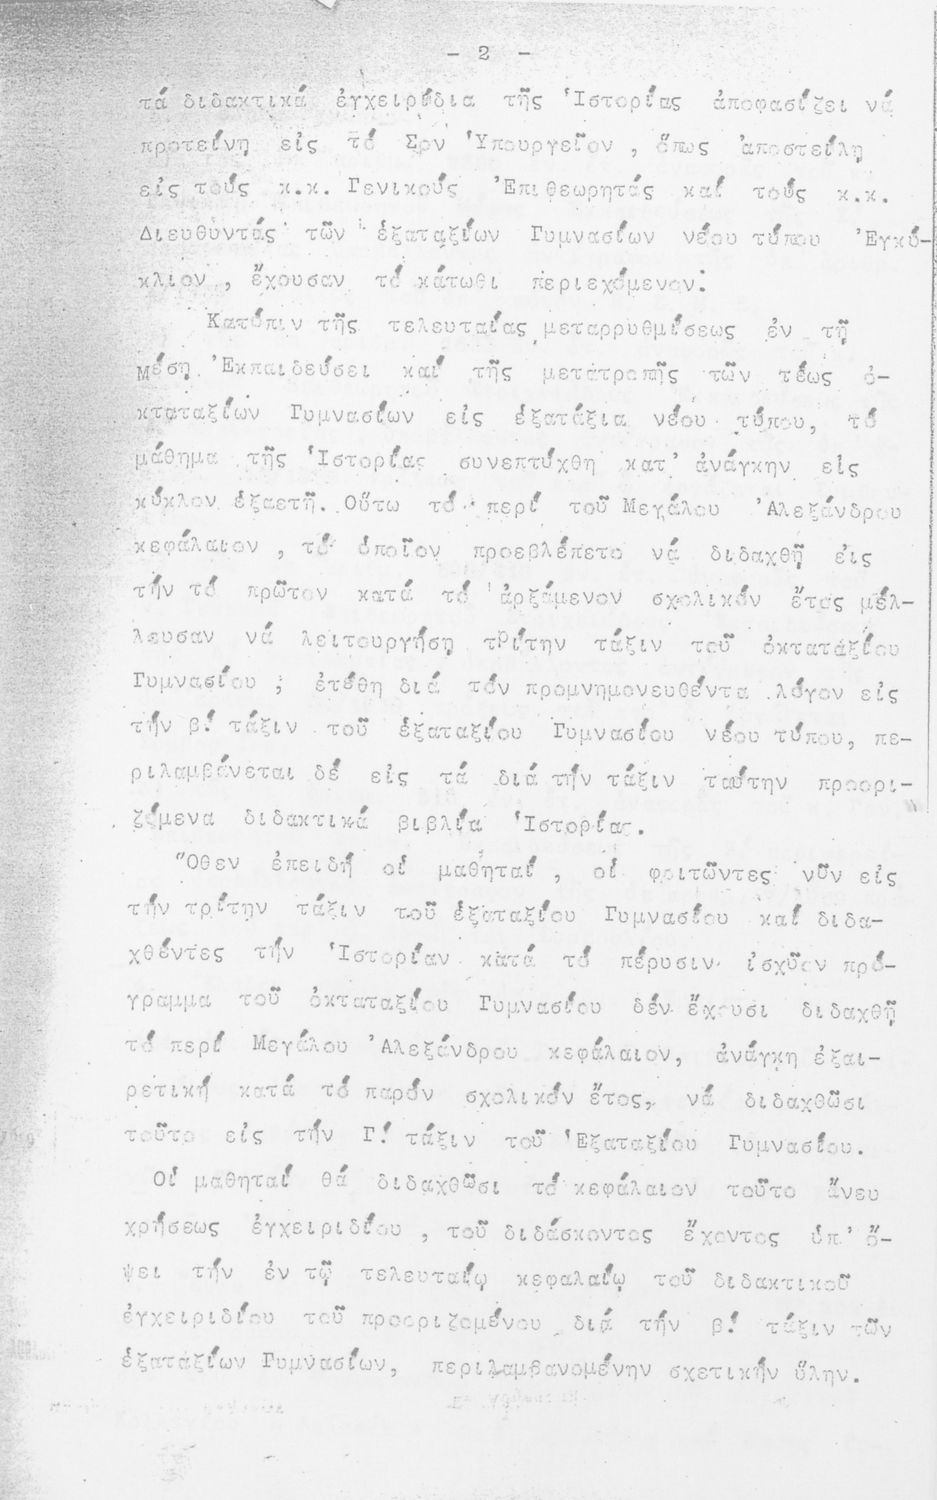 - 2 -
τά διδακτικά ἐγχειρίδια τῆς Ἱστορίας ἀποφασίζει νά
προτείνῃ εἰς τό Σον Ὑπουργεῖον , ὅπως ἀποστείλῃ
εἰς τούς κ.κ. Γενικούς Ἐπιθεωρητάς καί τούς κ.κ.
Διευθυντάς τῶν ἑξαταξίων Γυμνασίων νέου τύπου Ἐγκύ-
κλιον , ἔχουσαν τό κάτωθι περιεχόμενον:
Κατόπιν τῆς τελευταίας μεταρρυθμίσεως ἐν τῇ
Μέσῃ Ἐκπαιδεύσει καί τῆς μετατροπῆς τῶν τέως ὀ-
κταταξίων Γυμνασίων εἰς ἑξατάξια νέου τύπου, τό
μάθημα τῆς Ἱστορίας συνεπτύχθη κατ' ἀνάγκην εἰς
κύκλον ἑξαετῆ. Οὕτω τό περί τοῦ Μεγάλου Ἀλεξάνδρου
κεφάλαιον , τό ὁποῖον προεβλέπετο νά διδαχθῇ εἰς
τήν τό πρῶτον κατά τό ἀρξάμενον σχολικόν ἔτος μέλ-
λουσαν νά λειτουργήσῃ τρίτην τάξιν τοῦ ὀκτατάξίου
Γυμνασίου ; ἐτέθη διά τόν προμνημονευθέντα λόγον εἰς
τήν β! τάξιν τοῦ ἑξαταξίου Γυμνασίου νέου τύπου, πε-
ριλαμβάνεται δέ εἰς τά διά τήν τάξιν ταύτην προορι-
ζόμενα διδακτικά βιβλία Ἱστορίας.
Ὅθεν ἐπειδή οἱ μαθηταί , οἱ φοιτῶντες νῦν εἰς
τήν τρίτην τάξιν τοῦ ἑξαταξίου Γυμνασίου καί διδα-
χθέντες τήν Ἱστορίαν κατά τό πέρυσιν ἰσχῦον πρό-
γραμμα τοῦ ὀκταταξίου Γυμνασίου δέν ἔχουσι διδαχθῇ
τό περί Μεγάλου Ἀλεξάνδρου κεφάλαιον, ἀνάγκη ἐξαι-
ρετική κατά τό παρόν σχολικόν ἔτος, νά διδαχθῶσι
τοῦτο εἰς τήν Γ! τάξιν τοῦ Ἑξαταξίου Γυμνασίου.
Οἱ μαθηταί θά διδαχθῶσι τό κεφάλαιον τοῦτο ἄνευ
χρήσεως ἐγχειριδίου , τοῦ διδάσκοντος ἔχοντος ὑπ' ὄ-
ψει τήν ἐν τῷ τελευταίῳ κεφαλαίῳ τοῦ διδακτικοῦ
ἐγχειριδίου τοῦ προοριζομένου διά τήν β! τάξιν τῶν
ἑξαταξίων Γυμνασίων, περιλαμβανομένην σχετικήν ὕλην.